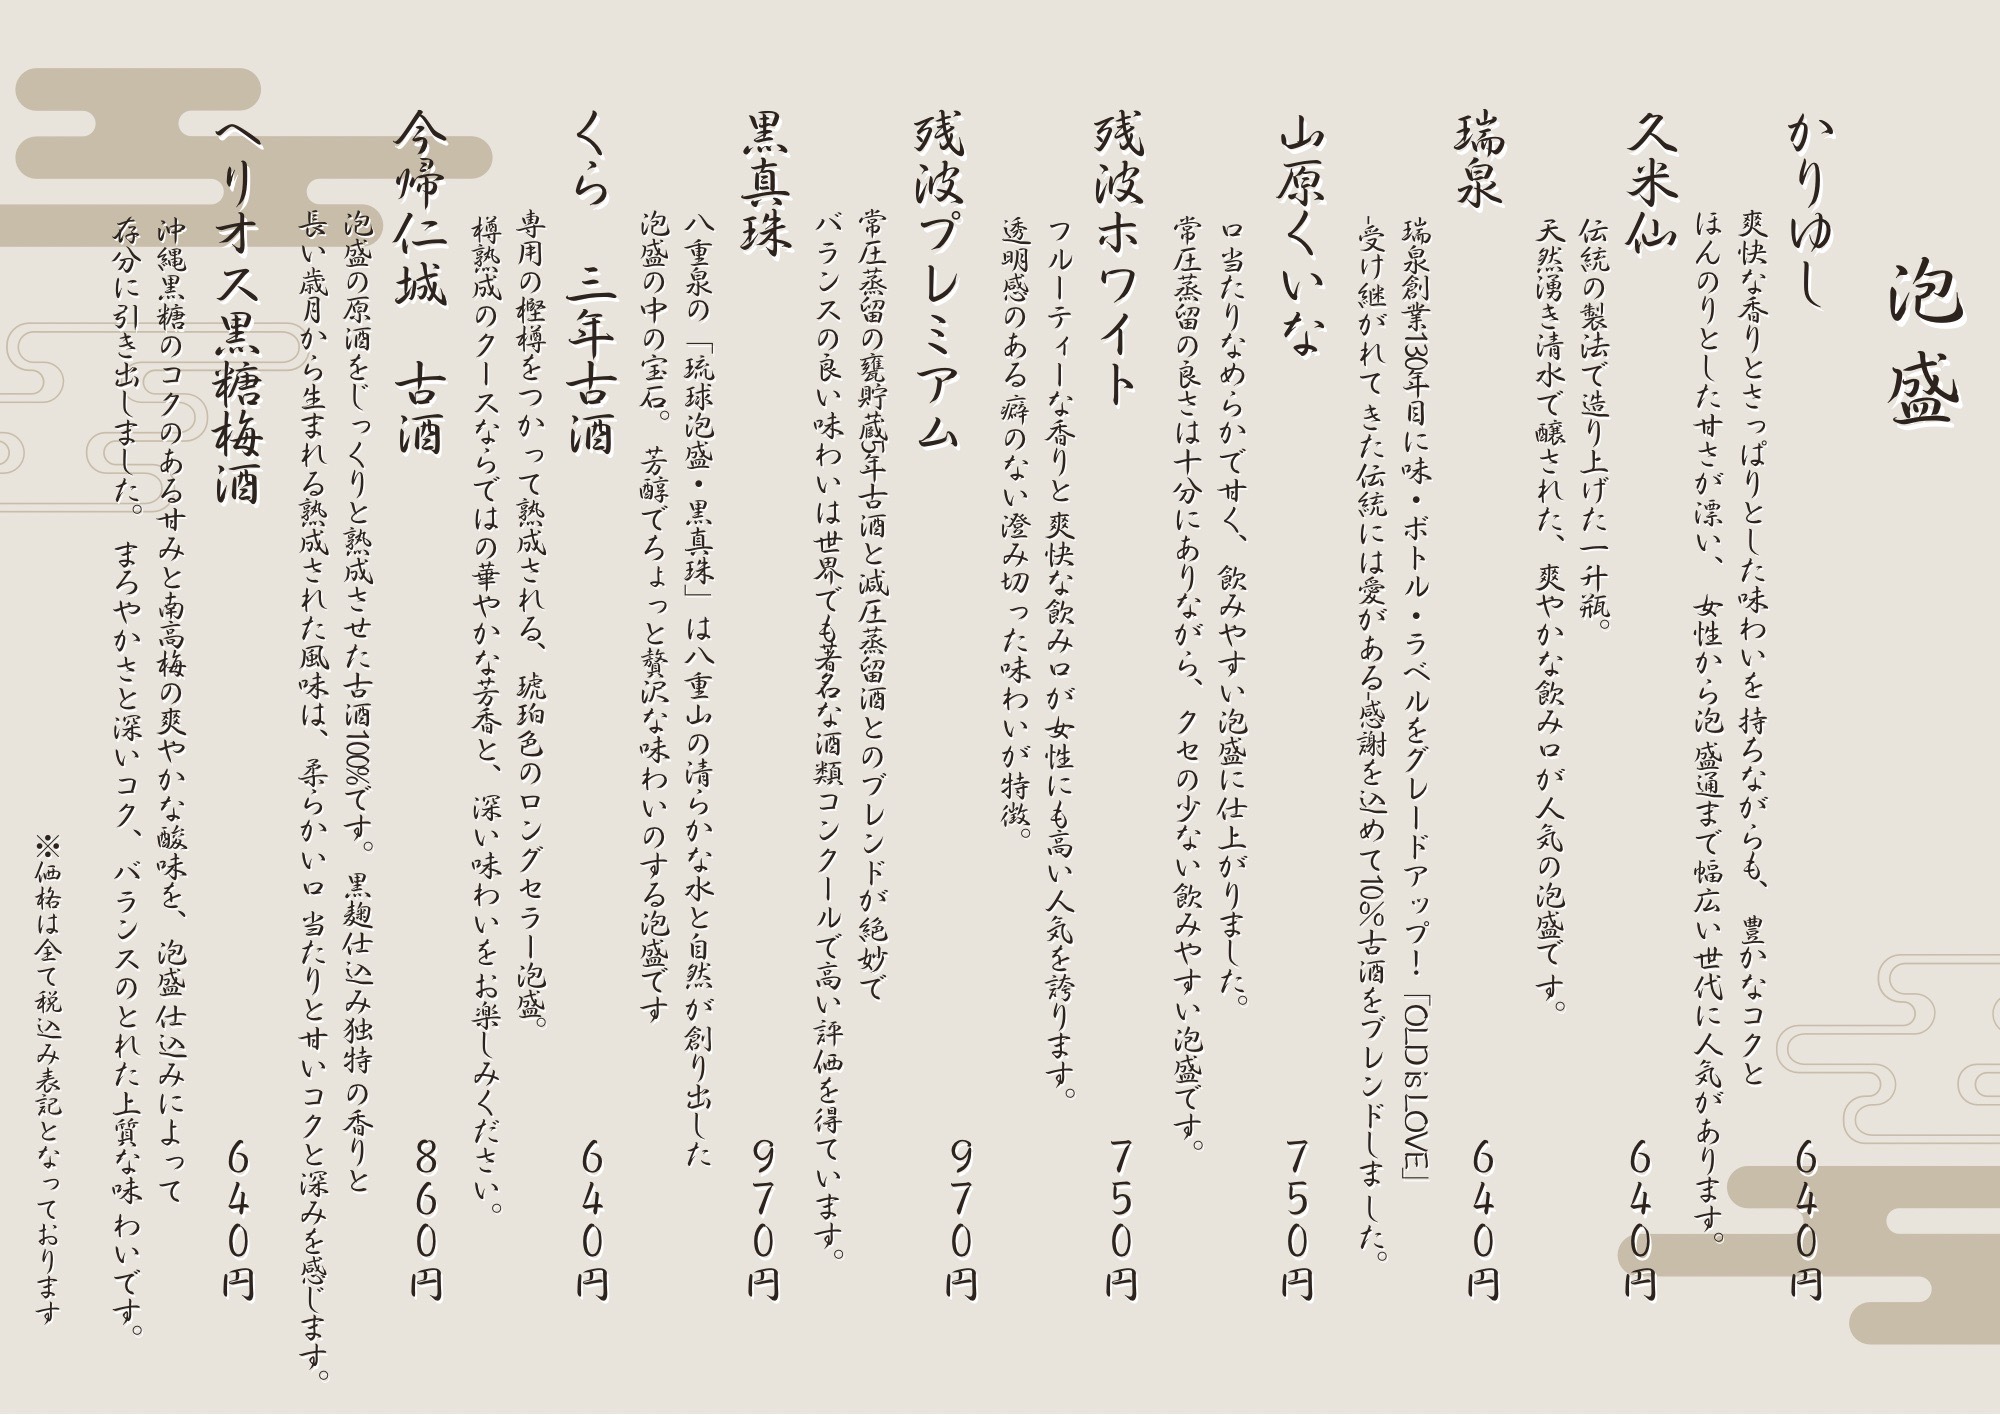 泡盛
かりゆし 640円
爽快な香りとさっぱりとした味わいを持ちながらも、豊かなコクと
ほんのりとした甘さが漂い、女性から泡盛通まで幅広い世代に人気があります。
久米仙 640円
伝統の製法で造り上げた一升瓶。
天然湧き清水で醸された、爽やかな飲み口が人気の泡盛です。
瑞泉 640円
瑞泉創業130年目に味・ボトル・ラベルをグレードアップ！「OLD is LOVE」
-受け継がれてきた伝統には愛がある-感謝を込めて10%古酒をブレンドしました。
山原くいな 750円
口当たりなめらかで甘く、飲みやすい泡盛に仕上がりました。
常圧蒸留の良さは十分にありながら、クセの少ない飲みやすい泡盛です。
残波ホワイト 750円
フルーティーな香りと爽快な飲み口が女性にも高い人気を誇ります。
透明感のある癖のない澄み切った味わいが特徴。
残波プレミアム 970円
常圧蒸留の甕貯蔵5年古酒と減圧蒸留酒とのブレンドが絶妙で
バランスの良い味わいは世界でも著名な酒類コンクールで高い評価を得ています。
黒真珠 970円
八重泉の「琉球泡盛・黒真珠」は八重山の清らかな水と自然が創り出した
泡盛の中の宝石。芳醇でちょっと贅沢な味わいのする泡盛です
くら 三年古酒 640円
専用の樫樽をつかって熟成される、琥珀色のロングセラー泡盛。
樽熟成のクースならではの華やかな芳香と、深い味わいをお楽しみください。
今帰仁城 古酒 860円
泡盛の原酒をじっくりと熟成させた古酒100%です。黒麹仕込み独特の香りと
長い歳月から生まれる熟成された風味は、柔らかい口当たりと甘いコクと深みを感じます。
ヘリオス黒糖梅酒 640円
沖縄黒糖のコクのある甘みと南高梅の爽やかな酸味を、泡盛仕込みによって
存分に引き出しました。まろやかさと深いコク、バランスのとれた上質な味わいです。
※価格は全て税込み表記となっております